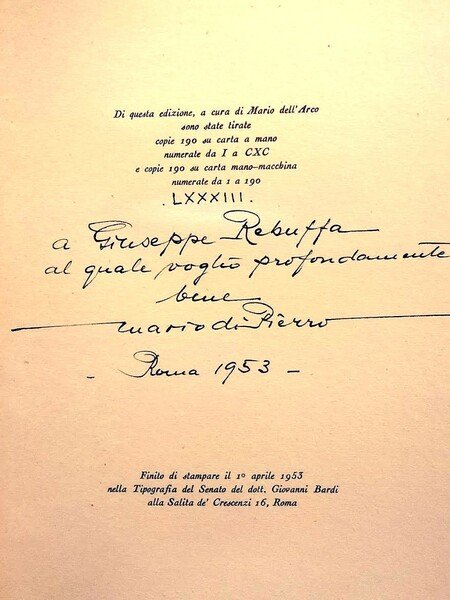 Di questa edizione, a cura di Mario dell'Arco
sono state tirate
copie 190 su carta a mano
numerate da I a CXC
e copie 190 su carta mano-macchina
numerate da 1 a 190
. LXXXIII .
a Giuseppe Rebuffa
al quale voglio profondamente
bene
Mario di Pierro
- Roma 1953 -
Finito di stampare il 1º aprile 1953
nella Tipografia del Senato del dott. Giovanni Bardi
alla Salita de' Crescenzi 16, Roma